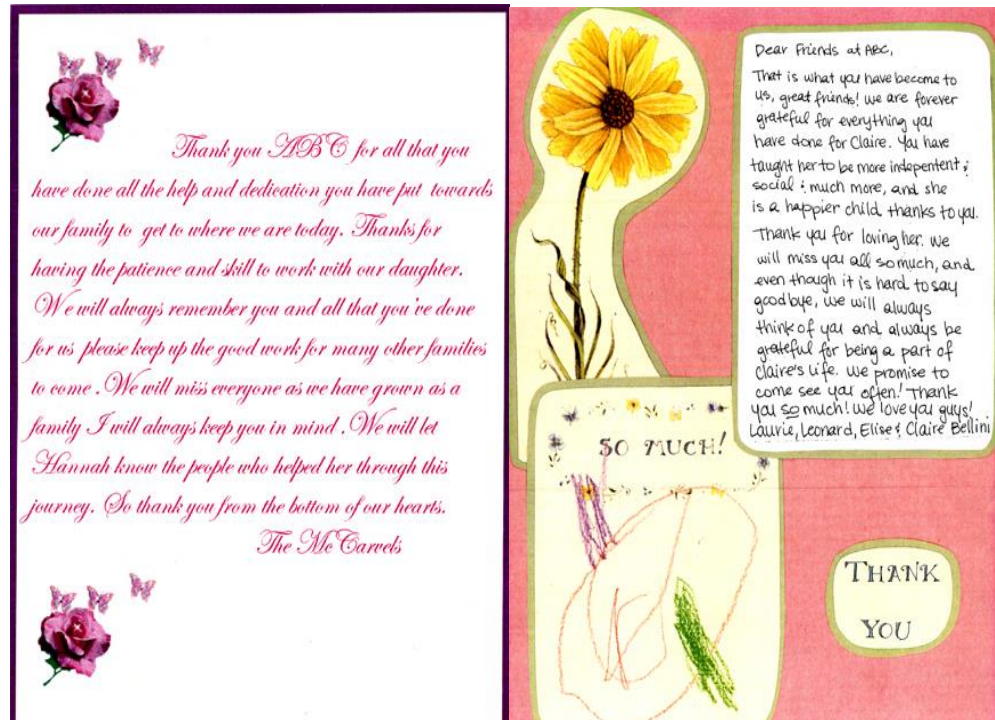 Thank you ABC for all that you
have done all the help and dedication you have put towards
our family to get to where we are today. Thanks for
having the patience and skill to work with our daughter.
We will always remember you and all that you've done
for us please keep up the good work for many other families
to come . We will miss everyone as we have grown as a
family I will always keep you in mind . We will let
Hannah know the people who helped her through this
journey. So thank you from the bottom of our hearts.
The McCarvels
Dear Friends at ABC,
That is what you have become to
us, great friends! We are forever
grateful for everything you
have done for Claire. You have
taught her to be more indepentent &
social & much more, and she
is a happier child thanks to you.
Thank you for loving her. We
will miss you all so much, and
even though it is hard to say
goodbye, we will always
think of you and always be
grateful for being a part of
Claire's life. We promise to
come see you often! Thank
you so much! We love you guys!
Laurie, Leonard, Elise & Claire Bellini
SO MUCH!
THANK
YOU